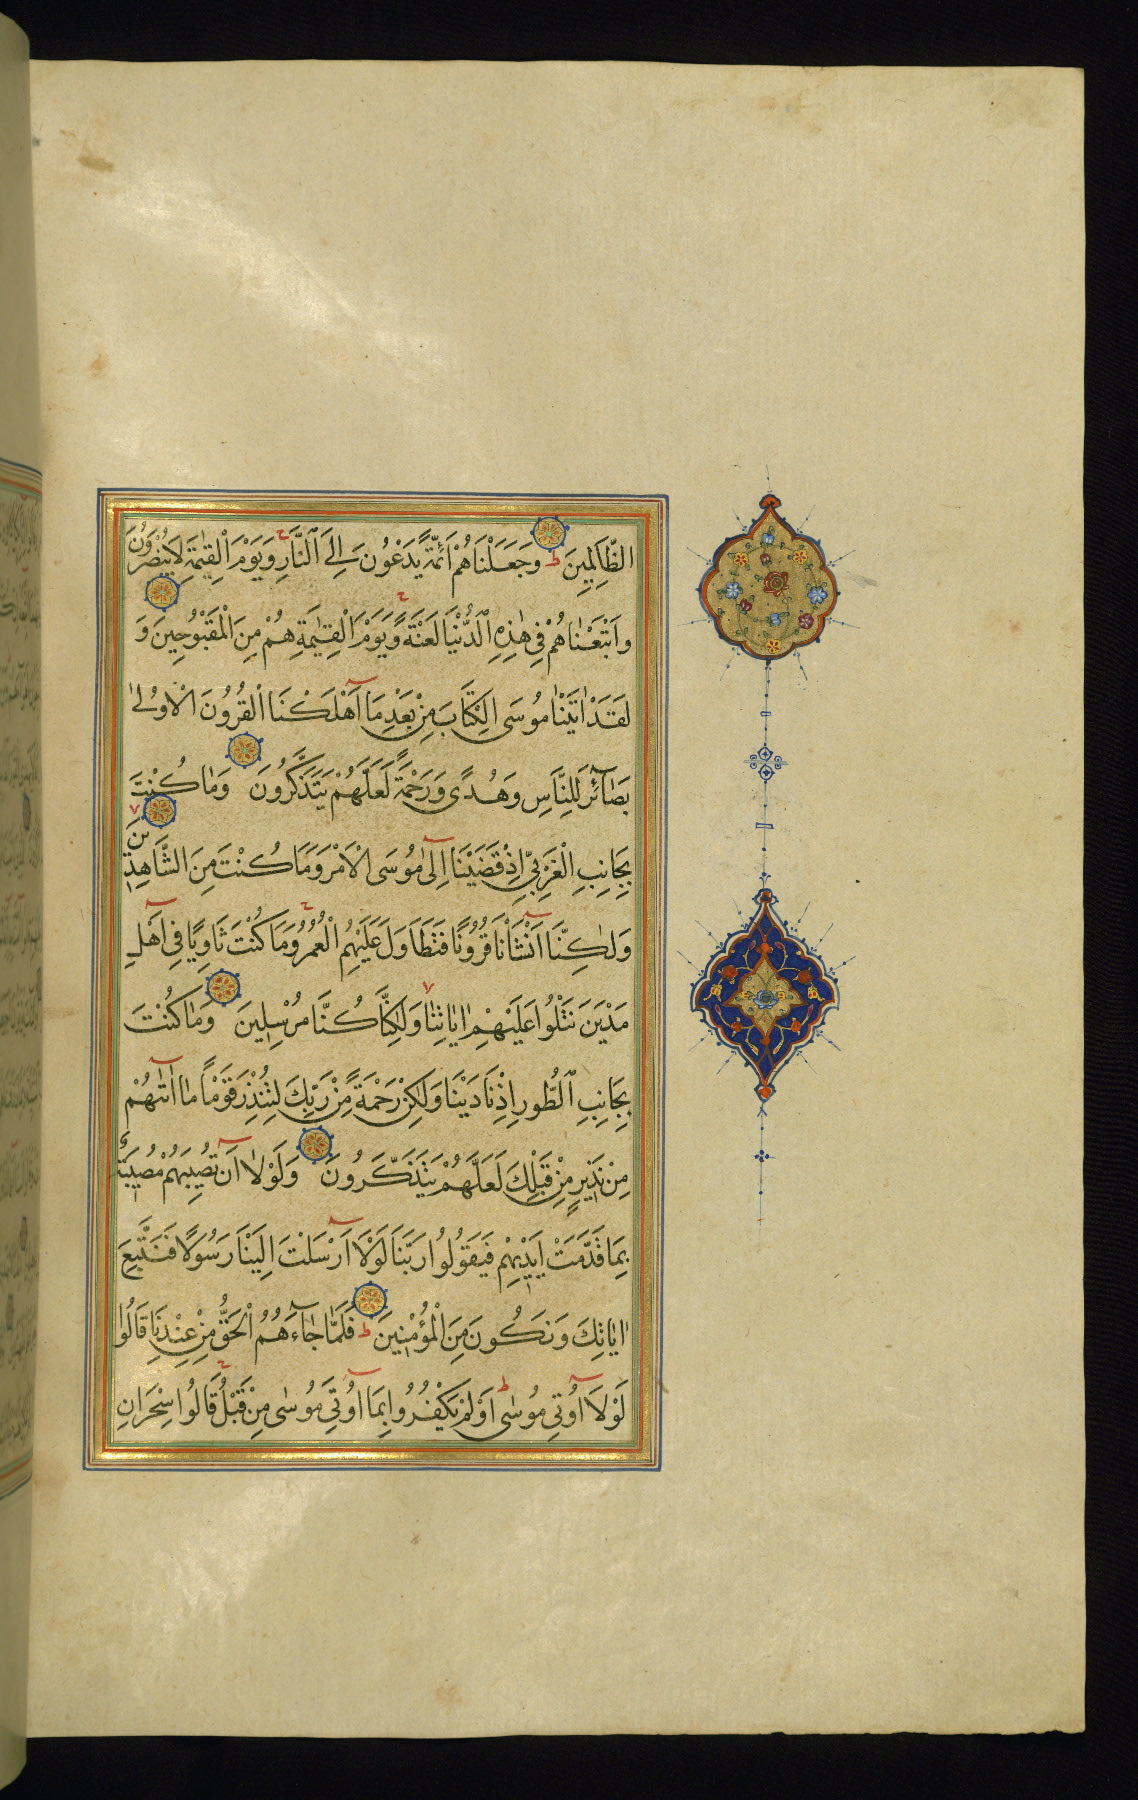 الظَّالِمِينَ ط وَجَعَلْنَاهُمْ اَئِمَّةً يَدْعُونَ اِلَى النَّارِ ج وَيَوْمَ الْقِيٰمَةِ لَا يُنْصَرُونَ
وَاَتْبَعْنَاهُمْ فِى هٰذِهِ الدُّنْيَا لَعْنَةً ج وَيَوْمَ الْقِيٰمَةِ هُمْ مِنَ الْمَقْبُوحِينَ وَ
لَقَدْ اٰتَيْنَا مُوسَى الْكِتَابَ مِنْ بَعْدِ مَا اَهْلَكْنَا الْقُرُونَ الْاُولٰى
بَصَائِرَ لِلنَّاسِ وَهُدًى وَرَحْمَةً لَعَلَّهُمْ يَتَذَكَّرُونَ وَمَا كُنْتَ
بِجَانِبِ الْغَرْبِىِّ اِذْ قَضَيْنَا اِلٰى مُوسَى الْاَمْرَ وَمَا كُنْتَ مِنَ الشَّاهِدِينَ
وَلٰكِنَّا اَنْشَأْنَا قُرُونًا فَتَطَاوَلَ عَلَيْهِمُ الْعُمُرُ ج وَمَا كُنْتَ ثَاوِيًا فِى اَهْلِ
مَدْيَنَ تَتْلُوا عَلَيْهِمْ اٰيَاتِنَا وَلٰكِنَّا كُنَّا مُرْسِلِينَ وَمَا كُنْتَ
بِجَانِبِ الطُّورِ اِذْ نَادَيْنَا وَلٰكِنْ رَحْمَةً مِنْ رَبِّكَ لِتُنْذِرَ قَوْمًا مَا اَتٰيهُمْ
مِنْ نَذِيرٍ مِنْ قَبْلِكَ لَعَلَّهُمْ يَتَذَكَّرُونَ وَلَوْلَا اَنْ تُصِيبَهُمْ مُصِيبَةٌ
بِمَا قَدَّمَتْ اَيْدِيهِمْ فَيَقُولُوا رَبَّنَا لَوْلَا اَرْسَلْتَ اِلَيْنَا رَسُولًا فَنَتَّبِعَ
اٰيَاتِكَ وَنَكُونَ مِنَ الْمُؤْمِنِينَ ط فَلَمَّا جَاءَهُمُ الْحَقُّ مِنْ عِنْدِنَا قَالُوا
لَوْلَا اُوتِىَ مُوسٰى ط اَوَلَمْ يَكْفُرُوا بِمَا اُوتِىَ مُوسٰى مِنْ قَبْلُ ج قَالُوا سِحْرَانِ